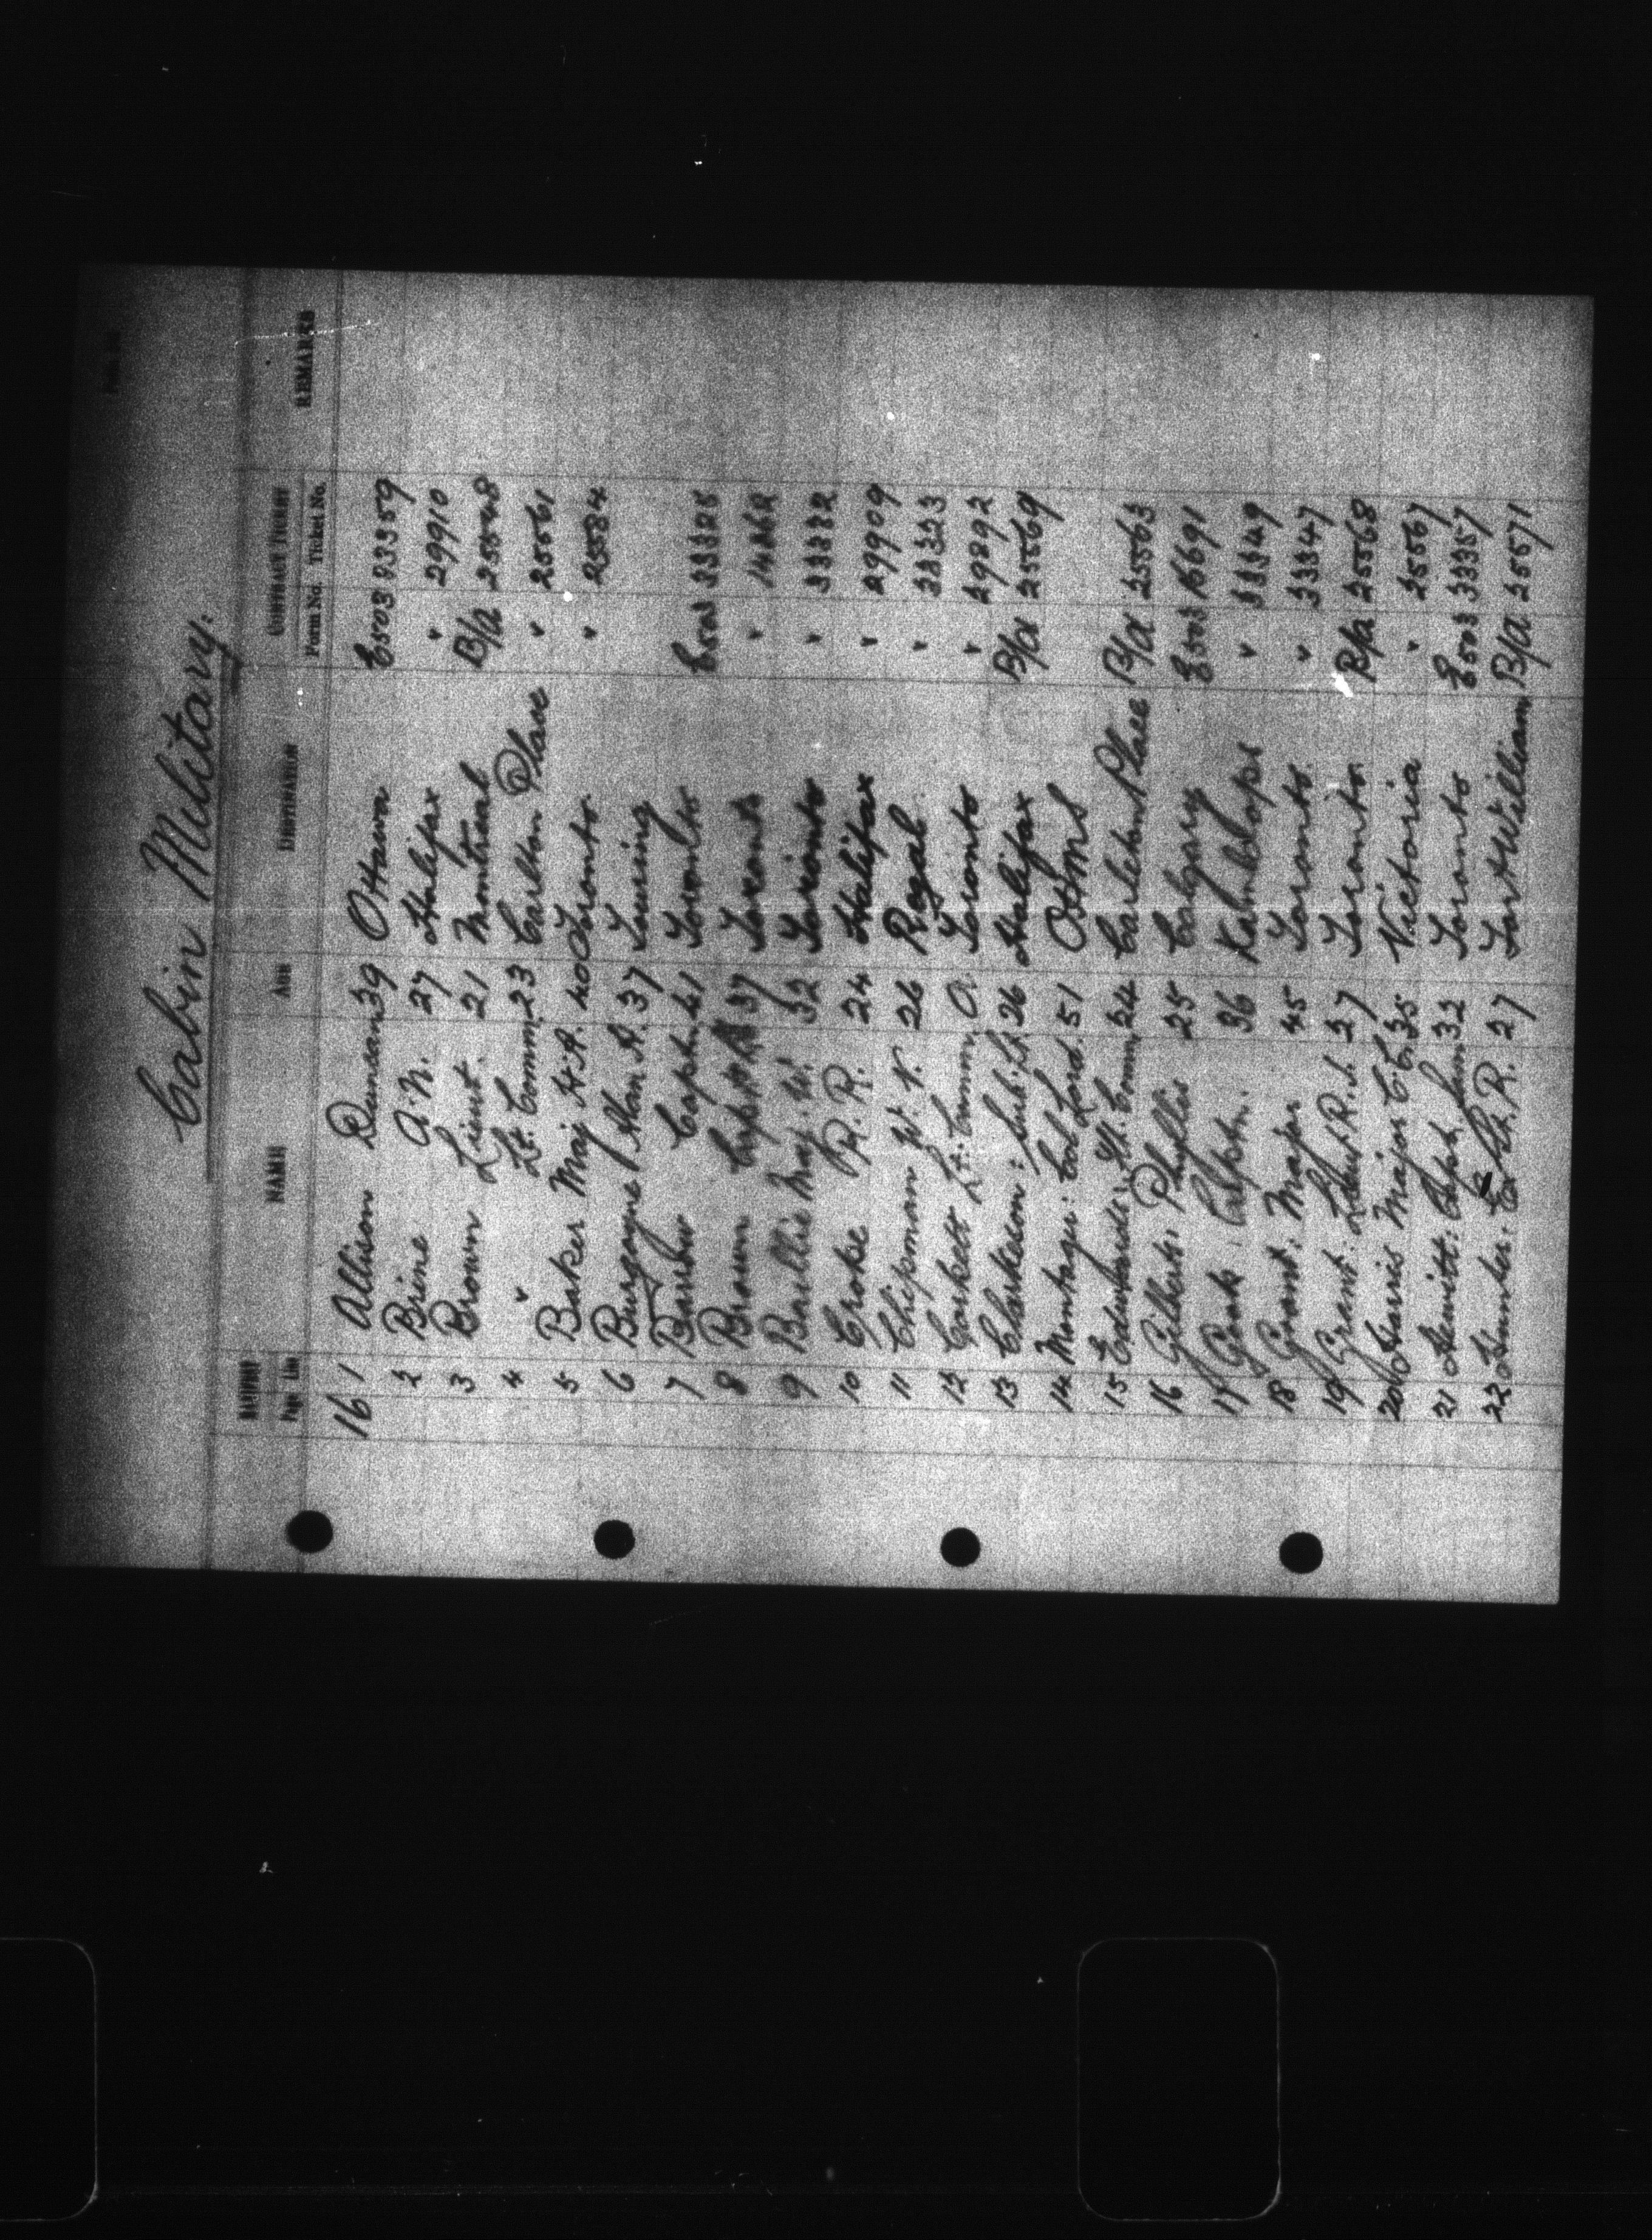 Cabin Military.
MANIFEST NAME AGE DESTINATION CONTRACT TICKET REMARKS
Page Line Form No. Ticket No.
16 1 Allison Duncan 39 Ottawa E503 23359
2 Brine A.N. 27 Halifax " 29910
3 Brown Lieut. 21 Montreal B/A 25548
4 " Lt. Comm. 23 Carlton Place " 25561
5 Baker Maj. H.A. 40 Toronto "
6 Burgoyne Hon. A. 37
7 Capt. 41 Toronto E503
8 Brown Capt. 37 Toronto "
9 Baillie Maj. W. 32 Toronto "
10 Croke R.R. 24 Halifax " 29909
11 Chipman W.V. 26 Regal " 33323
12 Corkett Lt. Comm. A. Toronto " 29892
13 Clarkeson: Sub. Lt. 26 Halifax B/A 25569
14 Montagu: Col Lord. 51
15 Lt. Comm. 24 Carleton Place B/A 25563
16 Gilbert, Phyllis 25 Calgary E503
17 Capt. 36 Kamloops " 33349
18 Grant, Major 45 Toronto " 33347
19 Grant: Lieut R.J. 27 Toronto B/A 25568
20 Harris Major C.C. 35 Victoria " 25567
21 Hewitt: Capt 32 Toronto E503 33357
22 Hunter. R. 27 Fort William B/A 25571